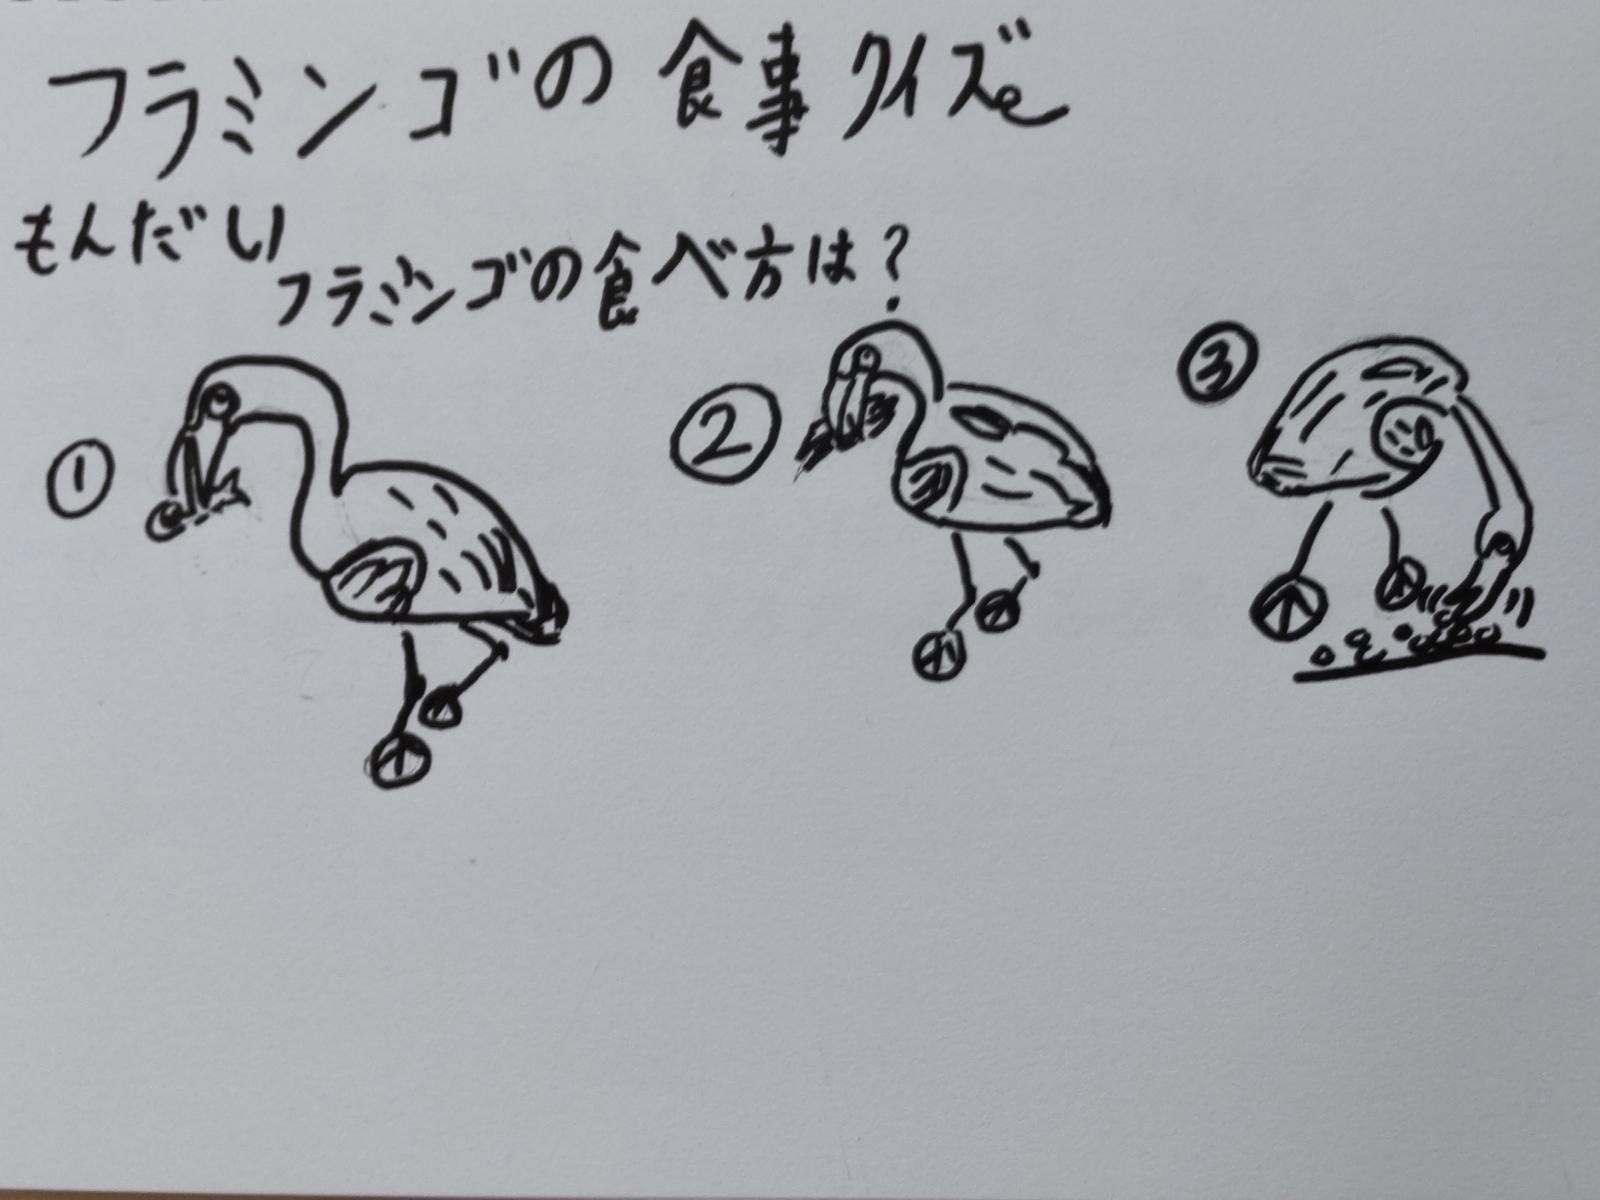 フラミンゴの食事クイズ
もんだい
フラミンゴの食べ方は?
①
②
③